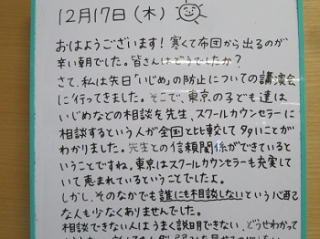 12月17日(木)
おはようございます!寒くて布団から出るのが
辛い朝でした。皆さんはどうでしたか?
さて、私は先日「いじめ」の防止についての講演会
に行ってきました。そこで、東京の子ども達は
いじめなどの相談を先生、スクールカウンセラーに
相談するという人が全国と比較して多いことが
わかりました。先生との信頼関係ができていると
いうことですね。東京はスクールカウンセラーも充実して
いて恵まれているということでしたよ。
しかし、そのなかでも誰にも相談しないという
な人も少なくありませんでした。
相談できない人はうまく説明できない、どうせわかって